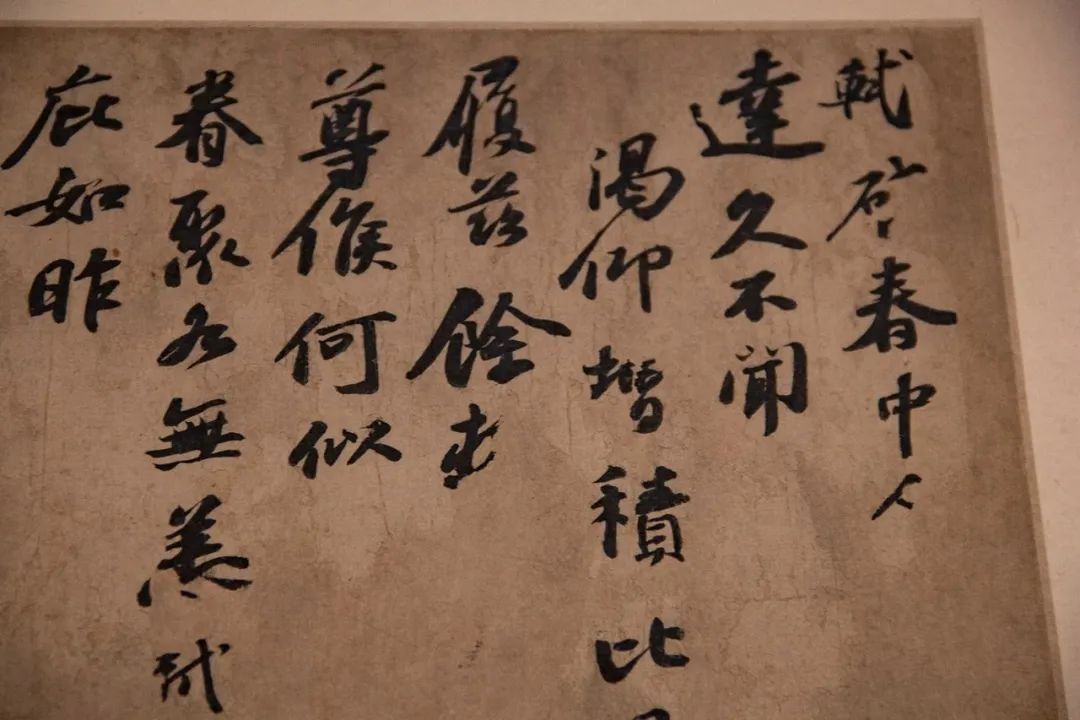 軾啓春中人
達久不聞
渴仰增積比
履茲餘
尊候何似
眷聚各無恙軾
庇如昨